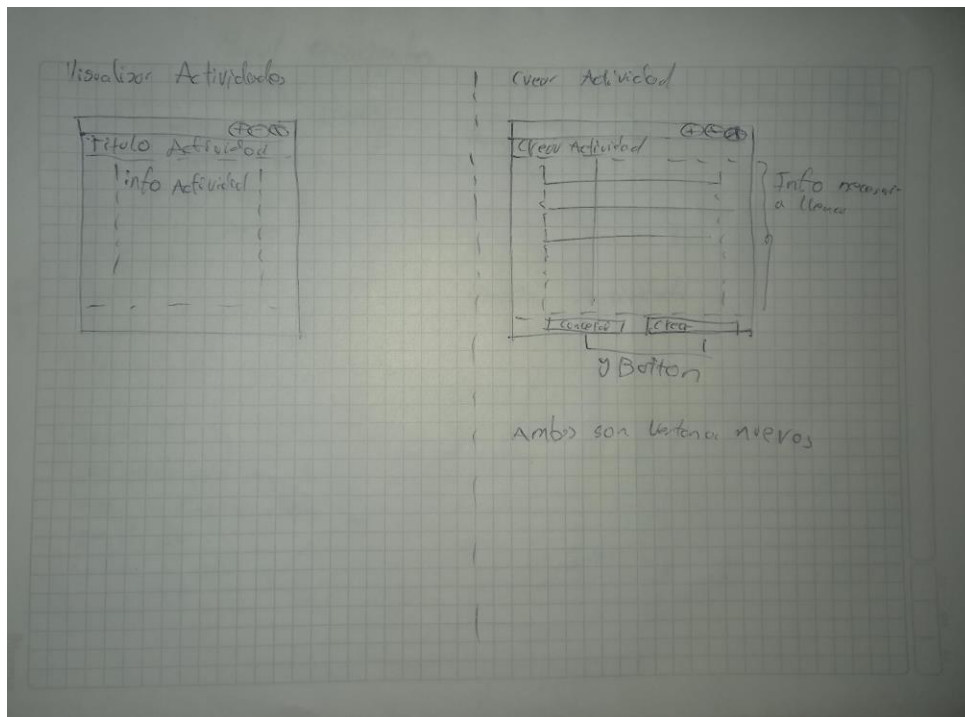 Visualizar Actividades
Titulo Actividad
info Actividad
Crear Actividad
Crear Actividad
Info necesar
a llenar
Cancelar
Crear
y Botton
Ambos son Ventana nuevos